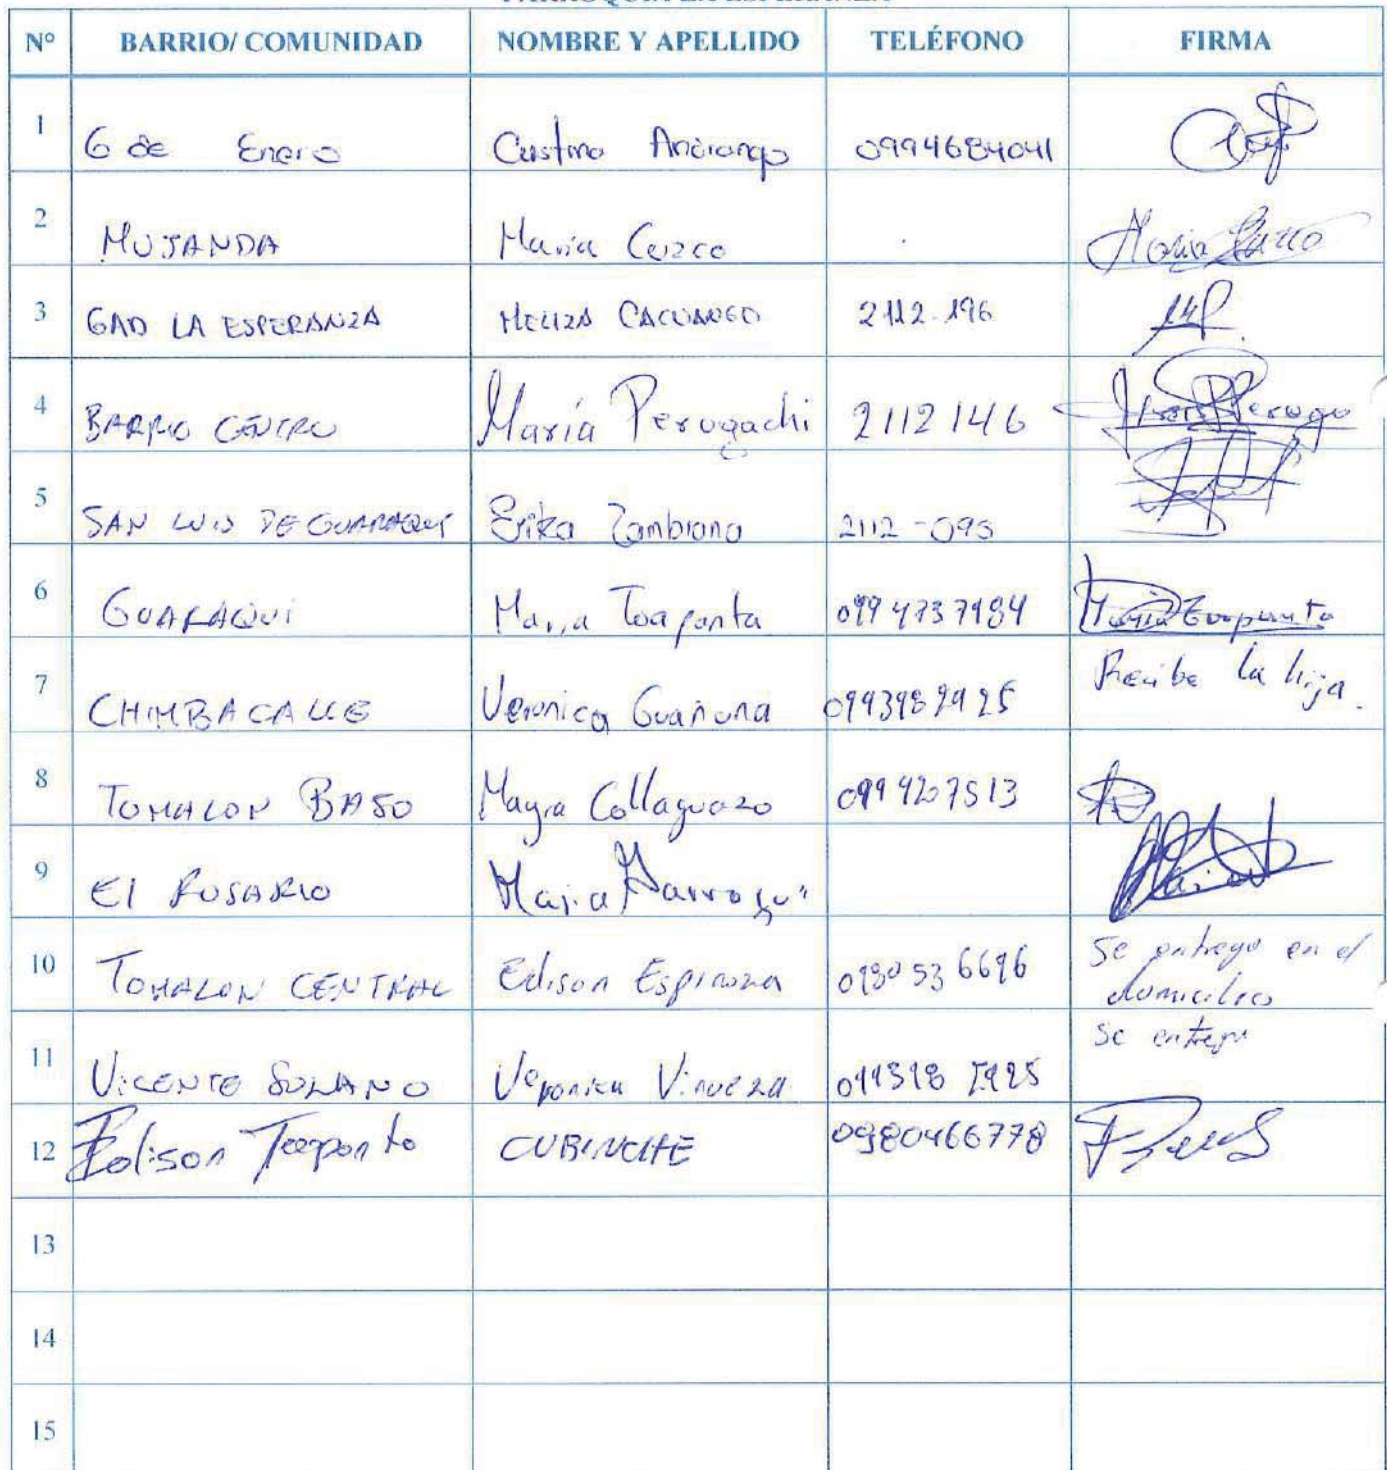 N° BARRIO/ COMUNIDAD NOMBRE Y APELLIDO TELÉFONO FIRMA
1 6 de Enero Cristina Andrango 0994684041
2 MOJANDA Maria Cuzco Maria Cuzco
3 GAD LA ESPERANZA MELIZA CACUANGO 2112-196
4 BARRIO CENTRO María Perugachi 2112146
5 SAN LUIS DE GUARAQUI Erika Zambrano 2112-095
6 GUARAQUI Maria Toapanta 0994737984 Maria Toapanta
7 CHIMBACALLE Veronica Guañuna Recibe la hija.
8 TOMALON BAJO Mayra Collaguazo 099427513
9 El ROSARIO Maria
10 TOMALON CENTRAL Edison Espinoza Se entrego en el
domicilio
11 VICENTE SOLANO Veronica Vinueza Se entrego
12 Edison Toapanta CUBINCHE 0980466778
13
14
15